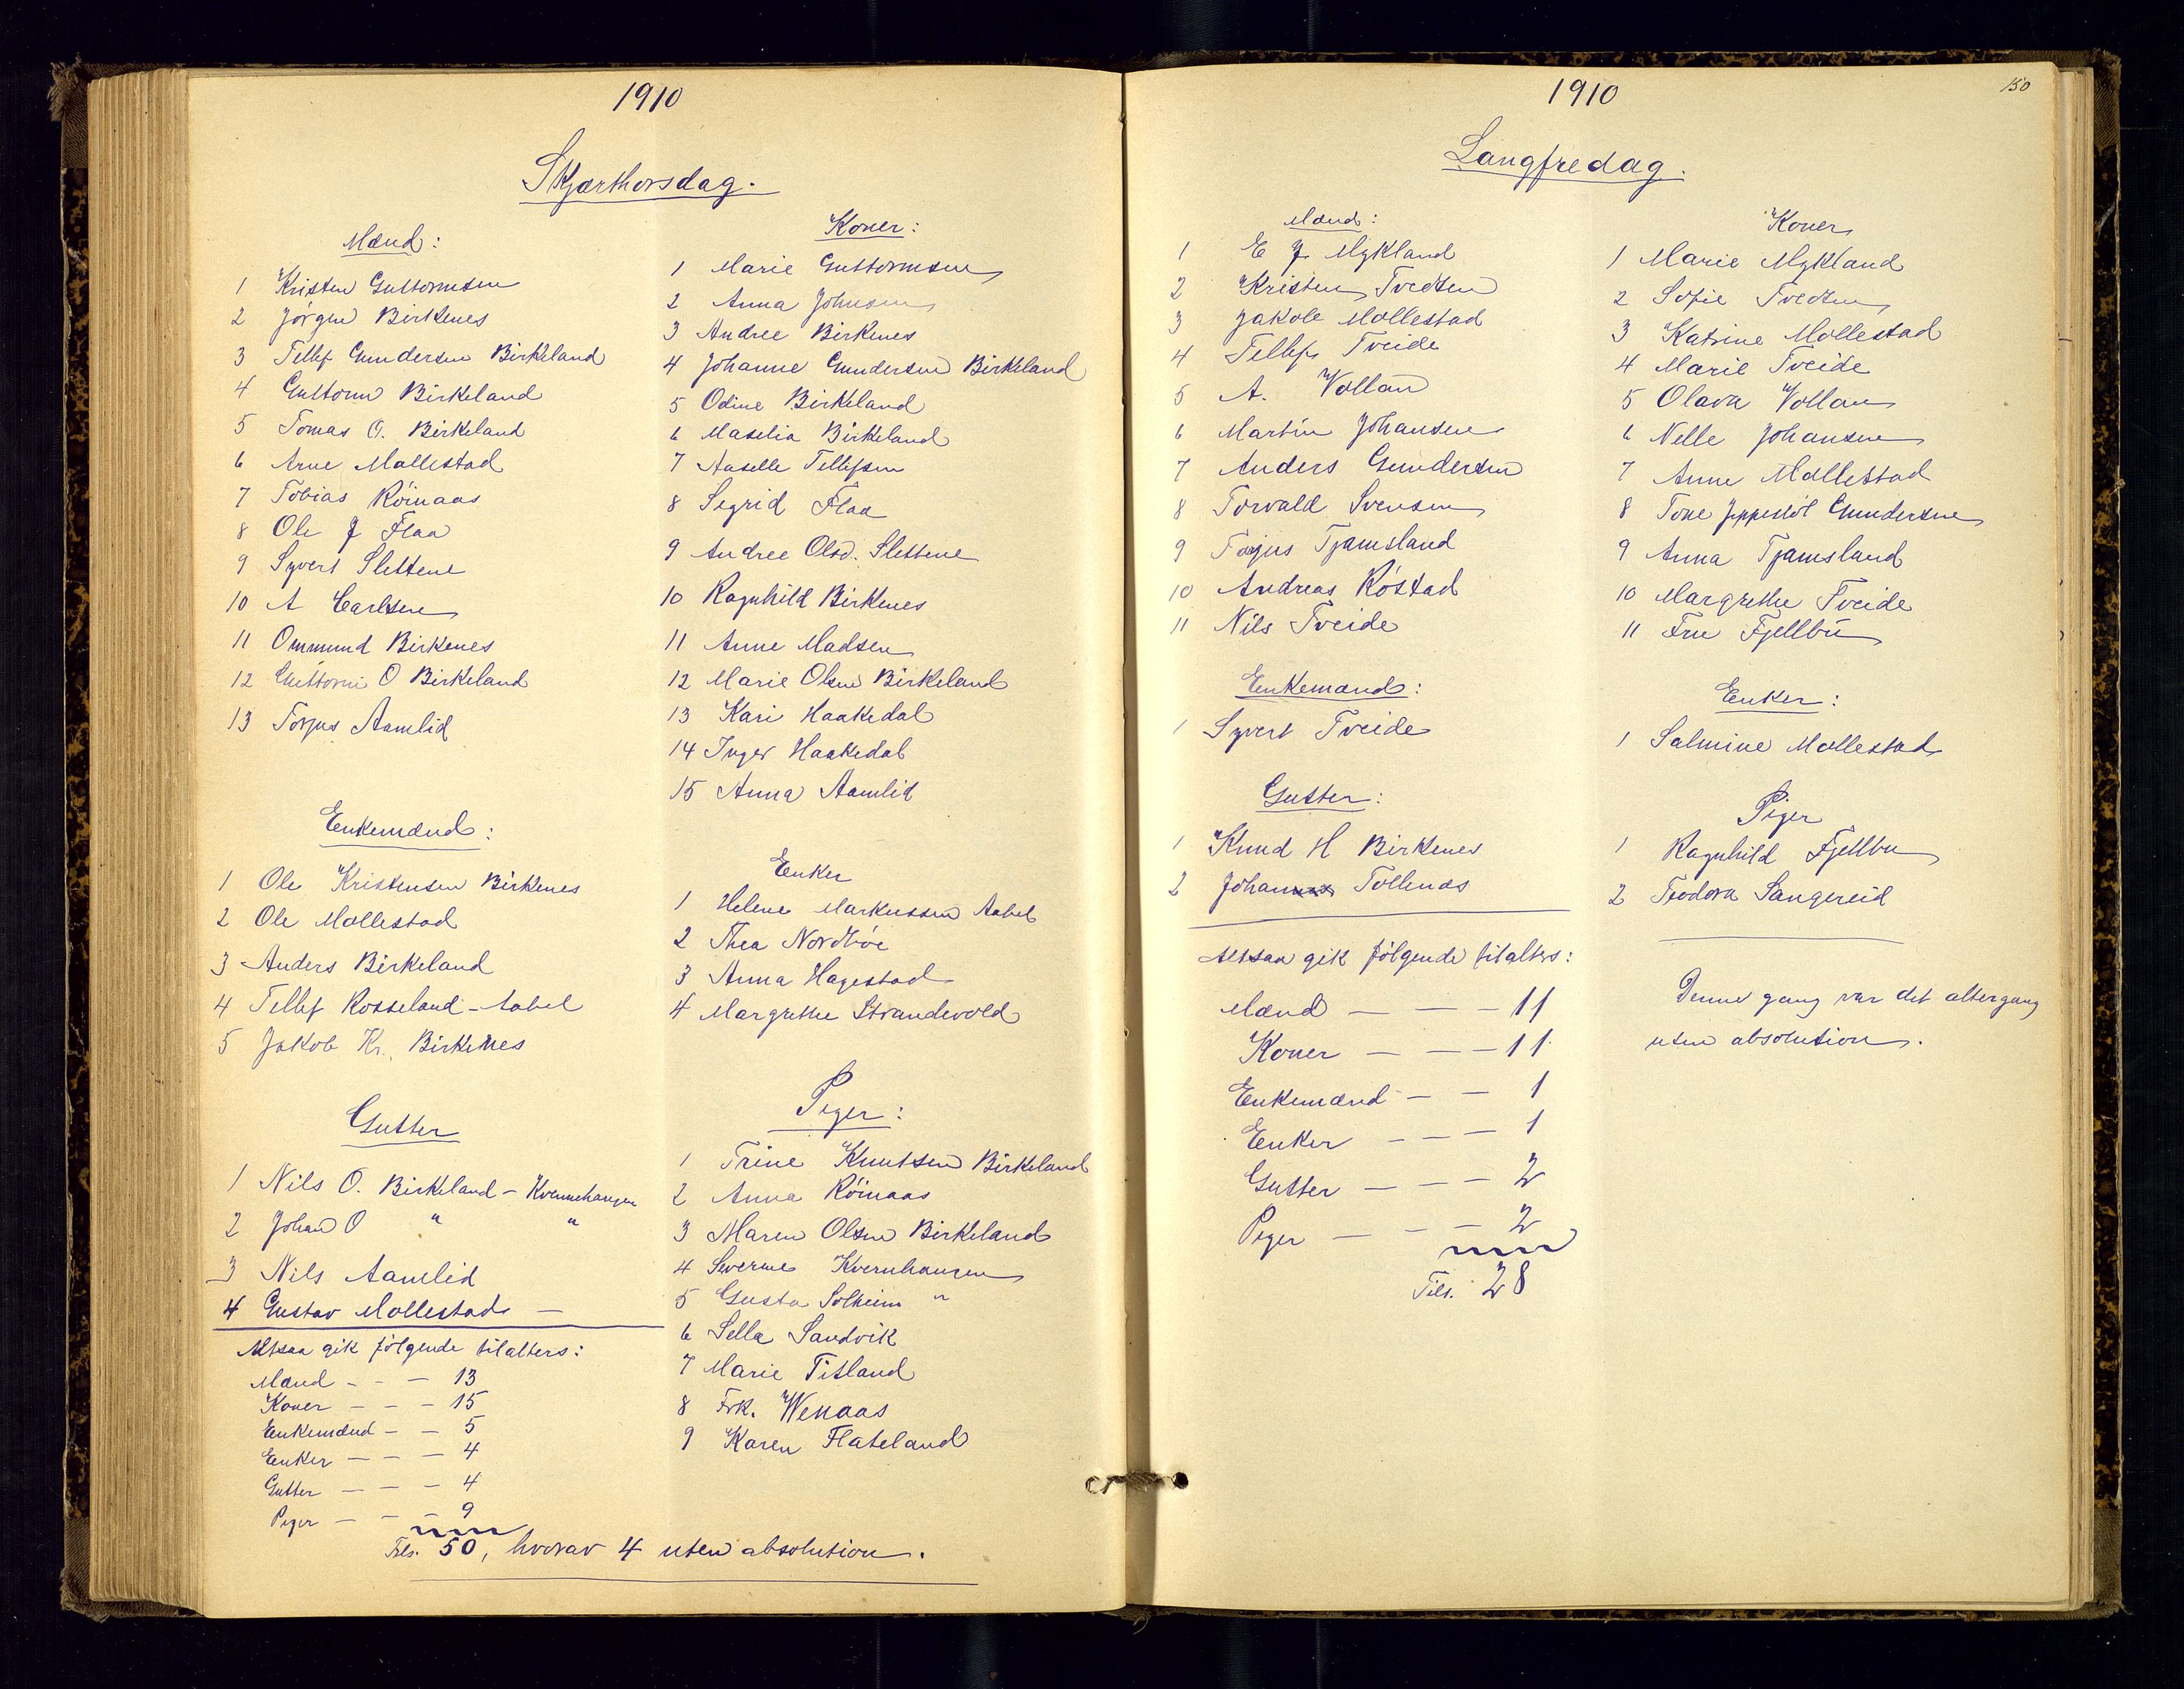 1910
Skjærthorsdag.
Mænd:
1 Kristen Guttormsen
2 Jørgen Birkenes
3 Tellef Gundersen Birkeland
4 Guttorm Birkeland
5 Tomas O. Birkeland
6 Arne Mollestad
7 Tobias Röinaas
8 Ole J Flaa
9 Syvert Slettene
10 A Carlsen
11 Ommund Birkenes
12 Guttorm O Birkeland
13 Torjus Aamlid
Enkemænd:
1 Ole Kristensen Birkenes
2 Ole Mollestad
3 Anders Birkeland
4 Tellef Rosseland - Aabel
5 Jakob Kr. Birkenes
Gutter
1 Nils O. Birkeland - Kvennehaugen
2 Johan O " "
3 Nils Aamlid
4 Gustav Mollestad —
Altsaa gik følgende tilalters:
Mænd - - - 13
Koner - - - 15
Enkemænd - - 5
Enker - - - 4
Gutter - - - 4
Peger - - - 9
Tils. 50, hvorav 4 uten absolution.
Koner:
1 Marie Guttormsen
2 Anna Johnsen
3 Andree Birkenes
4 Johanne Gundersen Birkeland
5 Odine Birkeland
6 Maselia Birkeland
7 Aaselle Tellefsen
8 Sigrid Flaa
9 Andree Olsd. Slettene
10 Ragnhild Birkenes
11 Anne Madsen
12 Marie Olsen Birkeland
13 Kari Haakedal
14 Inger Haakedal
15 Anna Aamlid
Enker
1 Helene Markussen Aabel
2 Thea Nordböe
3 Anna Hagestad
4 Margrethe Strandevold
Peger:
1 Trine Knutsen Birkeland
2 Anna Röinaas
3 Maren Olsen Birkeland
4 Severine Kvernhausen
5 Gusta Solheim "
6 Sella Sandvik
7 Marie Titland
8 Frk. Wenaas
9 Karen Flateland
1910
150
Langfredag.
Mænd:
1 E J. Mykland
2 Kristen Tvedten
3 Jakob Mollestad
4 Tellef Tveide
5 A. Vollan
6 Martin Johansen
7 Anders Gundersen
8 Torvald Svensen
9 Torjus Tjamsland
10 Andreas Röstad
11 Nils Tveide
Enkemænd:
1 Syvert Tveide
Gutter:
1 Knud H Birkenes
2 Johan Tollenæs
Altsaa gik følgende tilalters:
Mænd — — — 11
Koner — — — 11
Enkemænd — — 1
Enker — — — 1
Gutter — — — 2
Peger — — — 2
Tils. 28
Koner
1 Marie Mykland
2 Sofie Tvedten
3 Katrine Mollestad
4 Marie Tveide
5 Olava Vollan
6 Nelle Johansen
7 Anne Mollestad
8 Tone Jeppestöl Gundersen
9 Anna Tjamsland
10 Margrethe Tveide
11 Fru Fjellbu
Enker:
1 Salmine Mollestad
Piger
1 Ragnhild Fjellbu
2 Teodora Sangereid
Denne gang var det altergang
uten absolution.